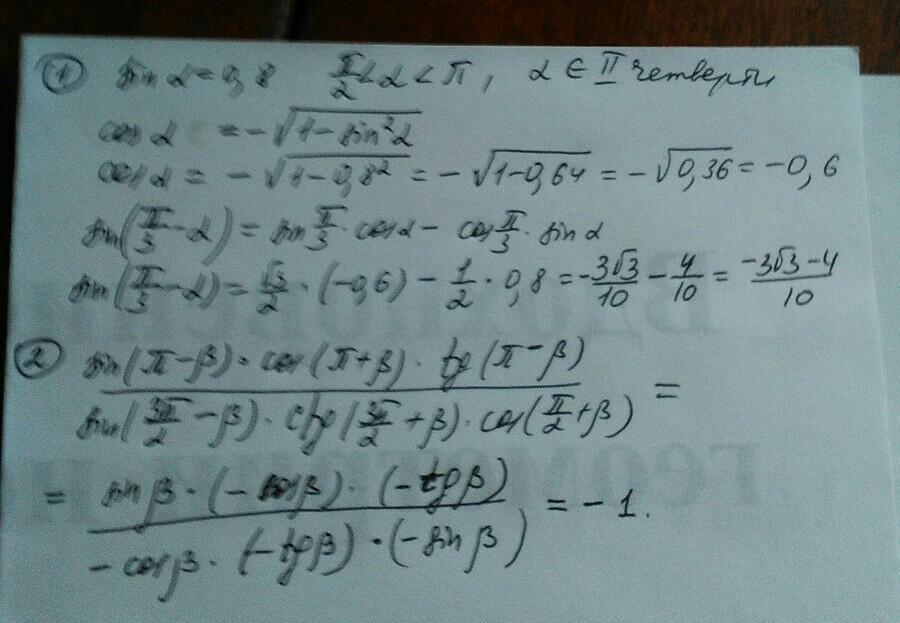 ① sin α = 0,8   π/2 < α < π, α ∈ II четверти
cos α = -√(1 - sin²α)
cos α = -√(1 - 0,8²) = -√(1-0,64) = -√(0,36) = -0,6
sin(π/3 - α) = sin π/3 · cos α - cos π/3 · sin α
sin(π/3 - α) = √3/2 · (-0,6) - 1/2 · 0,8 = -3√3/10 - 4/10 = (-3√3-4)/10
② sin(π-β) · cos(π+β) · tg(π-β)
/ sin(3π/2 - β) · ctg(3π/2 + β) · cos(π/2 + β) =
= sin β · (-cos β) · (-tg β)
/ -cos β · (-tg β) · (-sin β) = -1.